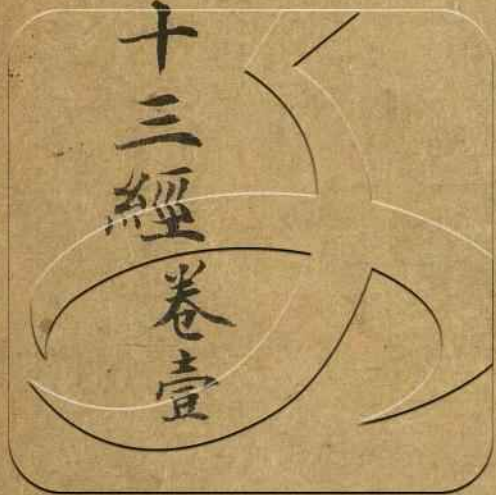 十三經卷壹